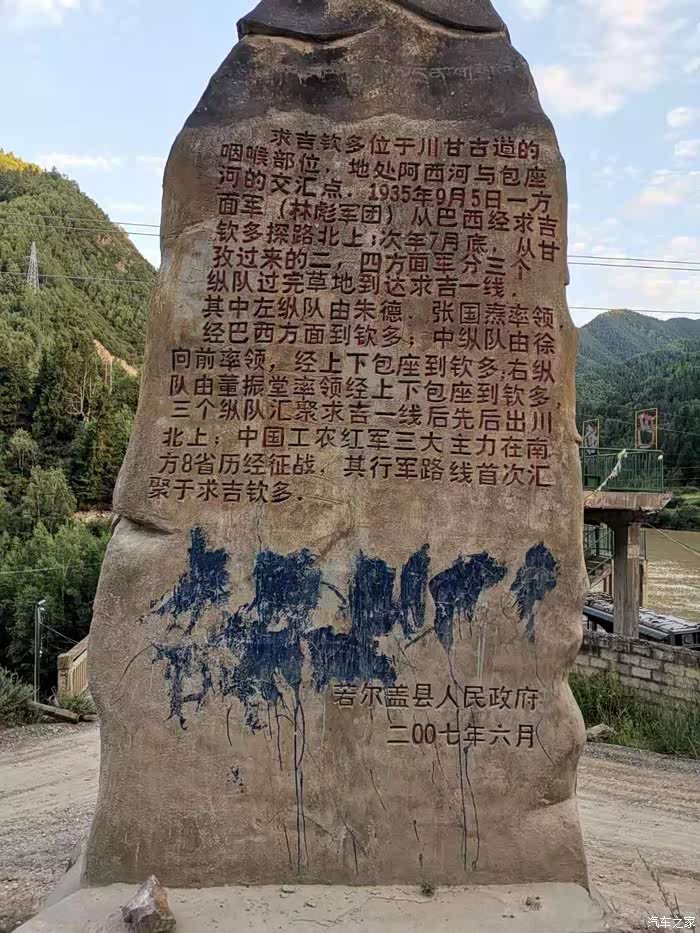 求吉钦多位于川甘古道的
咽喉部位，地处阿西河与包座
河的交汇点。1935年9月5日一方
面军（林彪军团）从巴西经求吉
钦多探路北上；次年7月底，从甘
孜过来的二、四方面军分三个
纵队过完草地到达求吉一线．
其中左纵队由朱德、张国焘率领
经巴西方面到钦多；中纵队由徐
向前率领，经上下包座到钦多；右纵
队由董振堂率领经上下包座到钦多，
三个纵队汇聚求吉一线后先后出川
北上；中国工农红军三大主力在南
方8省历经征战，其行军路线首次汇
聚于求吉钦多．
若尔盖县人民政府
二00七年六月
汽车之家